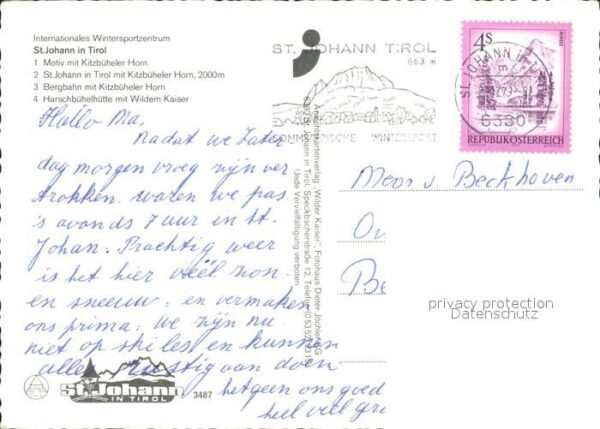 Internationales Wintersportzentrum
St.Johann in Tirol
1 Motiv mit Kitzbüheler Horn
2 St.Johann in Tirol mit Kitzbüheler Horn, 2000m
3 Bergbahn mit Kitzbüheler Horn
4 Harschbühelhütte mit Wildem Kaiser
Hallo Ma,
Nadat we Zater
dag morgen vroeg zijn ver
trokken. waren we pas
's avonds 7 uur in St.
Johan. Prachtig weer
is het hier veel zon
en sneeuw, en vermaken
ons prima. we zijn nu
niet op ski les en kunnen
alles rustig aan doen
het geen ons goed
heel veel gr
St.Johann
IN TIROL
3487
Ansichtskartenverlag „Wilder Kaiser“, Fotohaus Dieter Jöchler KG
St. Johann in Tirol, Speckbacherstraße 12, Telefon
Jede Vervielfältigung verboten
ST. JOHANN TIROL
663 m
SOMMERFRISCHE WINTERSPORT
ST. JOHANN
6380
4S
ALMSEE
REPUBLIK ÖSTERREICH
Mevr v. Beckhoven
Ou
Be
privacy protection
DELCAMPE